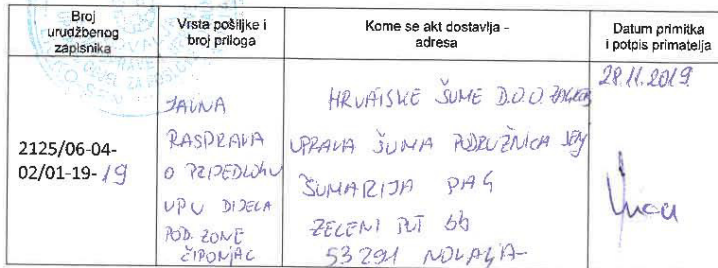 Broj
urudžbenog
zapisnika
Vrsta pošiljke i
broj priloga
Kome se akt dostavlja -
adresa
Datum primitka
i potpis primatelja
2125/06-04-
02/01-19-19
JAVNA
RASPRAVA
O PRIJEDLOGU
UPU DIJELA
POD. ZONE
ČIPONJAC
HRVATSKE ŠUME D.O.O. ZAGREB
UPRAVA ŠUMA PODRUŽNICA SENJ
ŠUMARIJA PAG
ZELENI PUT bb
53291 NOVALJA
28.11.2019.